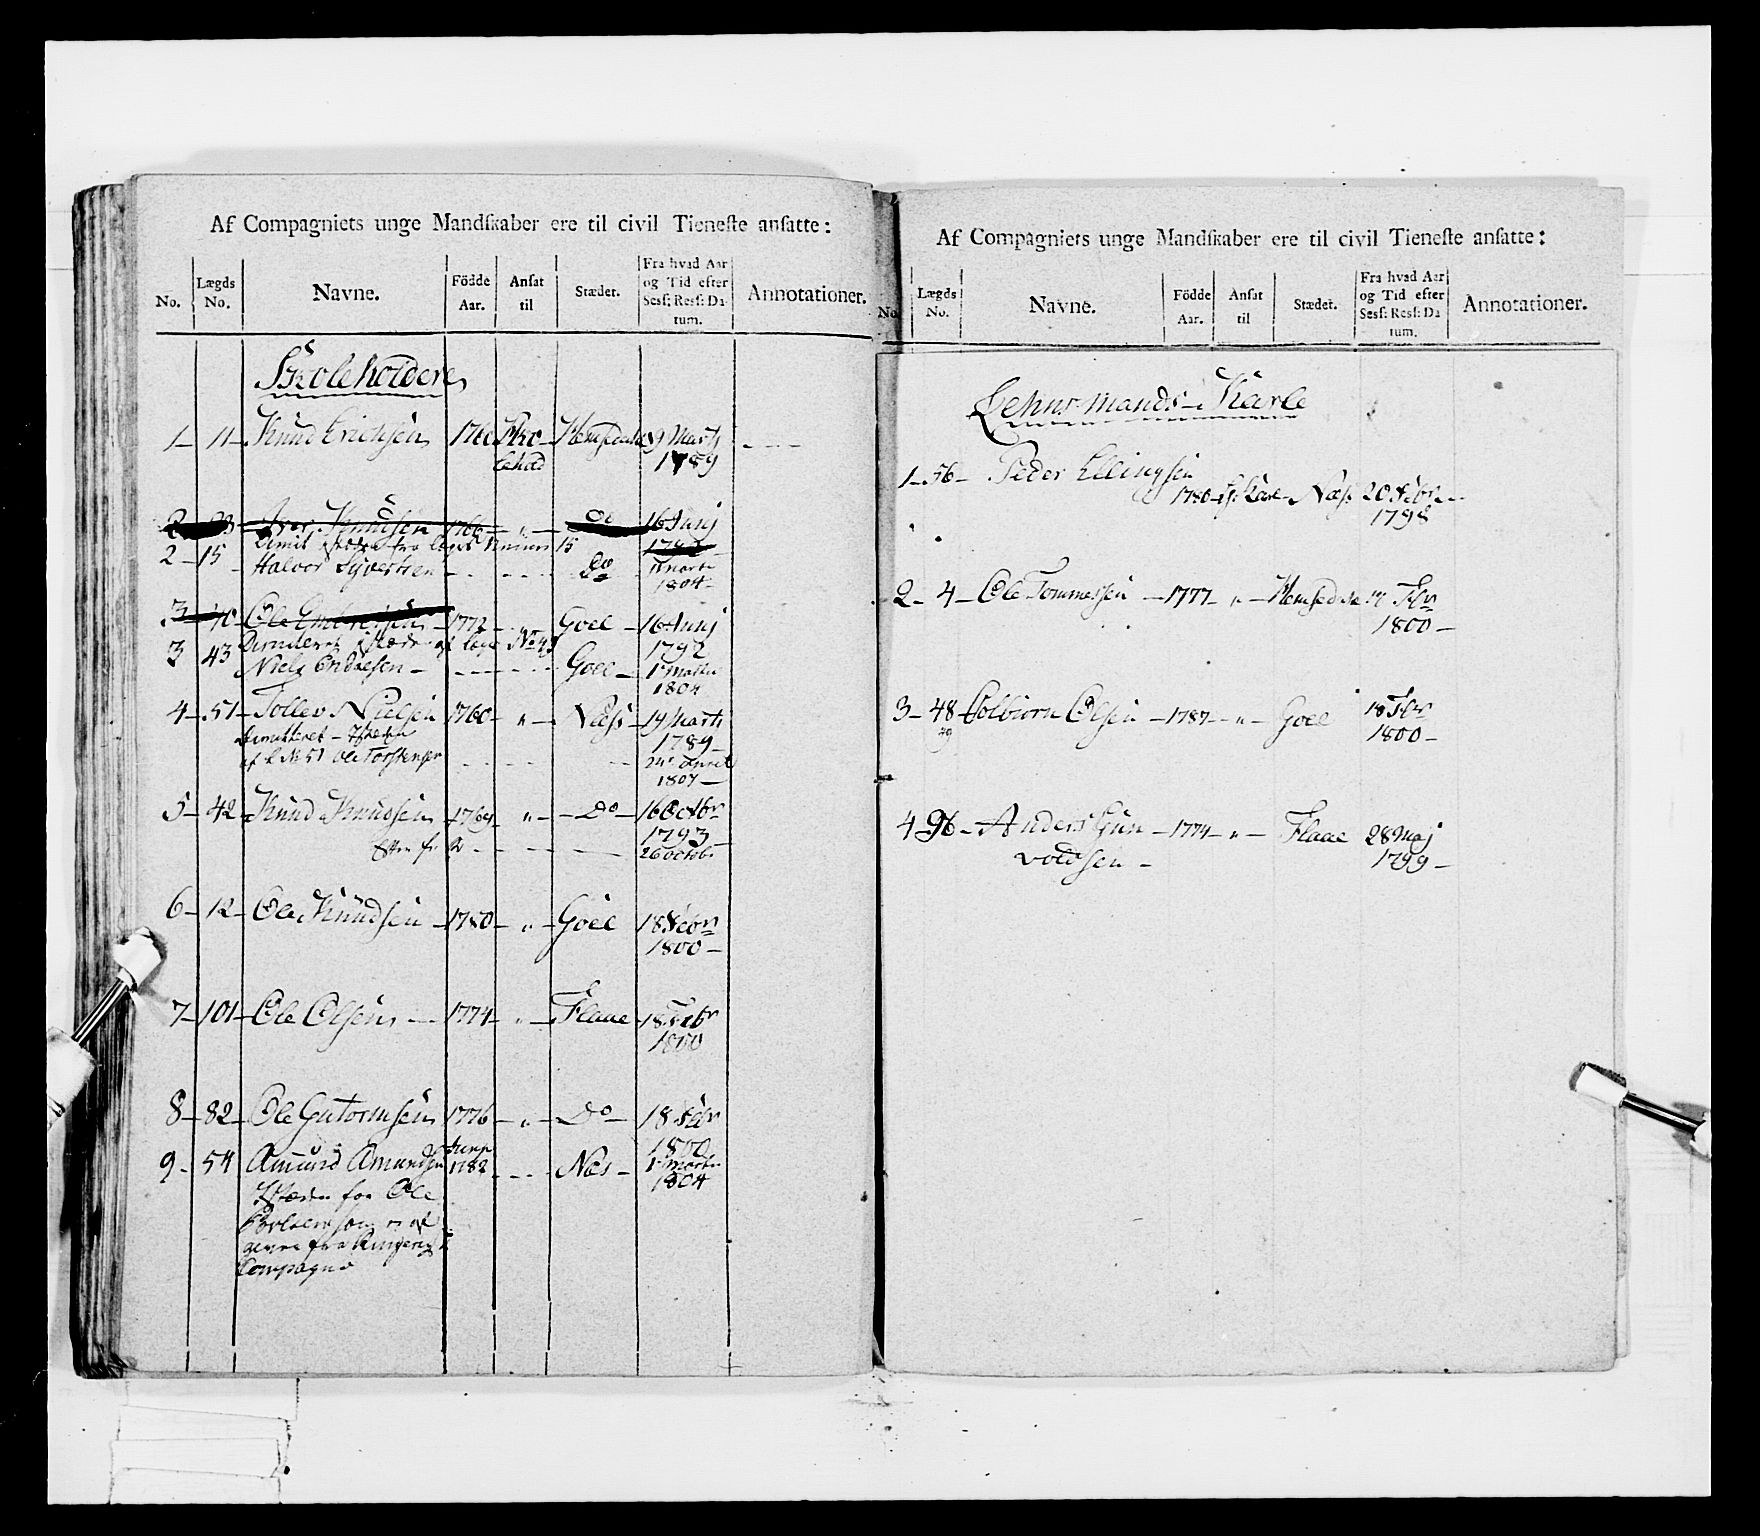 Af Compagniets unge Mandſkaber ere til civil Tieneſte anſatte:
No. Lægds No. Navne. Födde Aar. Anſat til Stædet. Fra hvad Aar og Tid efter Sesſ: Resſ: Datum. Annotationer.
Skoleholdere
1 11 Knud Erichsen 1760 Sko- Hemsedal 9 Marty
lehold 1789
2 23 Iver Knudsen 1766 " Do 16 Junj
1792
2 15 Halvor Do
1804
3 40 Ole Embrichsen 1772 " Goel 16 Junj
1792
3 43 Niels Endresen Goel 1 Martii
1804
4 51 Tollev Nielsen 1760 " Næss 19 Marti
Dimitteret 1789
af L No 51 Ole Torstensen 24 April
1807
5 42 Knud Knudsen 1769 " Do 16 Octbr
1793
26 octob
6 12 Ole Knudsen 1780 " Goel 18 Febr
1800
7 101 Ole Olsen 1774 " Flaae 18 Febr
1800
8 82 Ole Gutormsen 1776 " Do 18 Febr
1800
9 54 Amund Amundsen 1782 Næs 1 Martii
1804
Istæden for Ole
som er af
fra Ringerig
Compagni
Af Compagniets unge Mandſkaber ere til civil Tieneſte anſatte:
No. Lægds No. Navne. Födde Aar. Anſat til Stædet. Fra hvad Aar og Tid efter Sesſ: Resſ: Datum. Annotationer.
Lehnsmands-Karle
1 56 Peder Ellingsen
1780 Karl Næss 20 Febr
1798
2 4 Ole Tommessen 1777 " Hemsedal 17 Febr
1800
3 48 Colbiorn Olsen 1787 " Goel 18 Febr
1800
4 96 Anders Gun- 1774 " Flaae 28 Maj
voldsen 1799